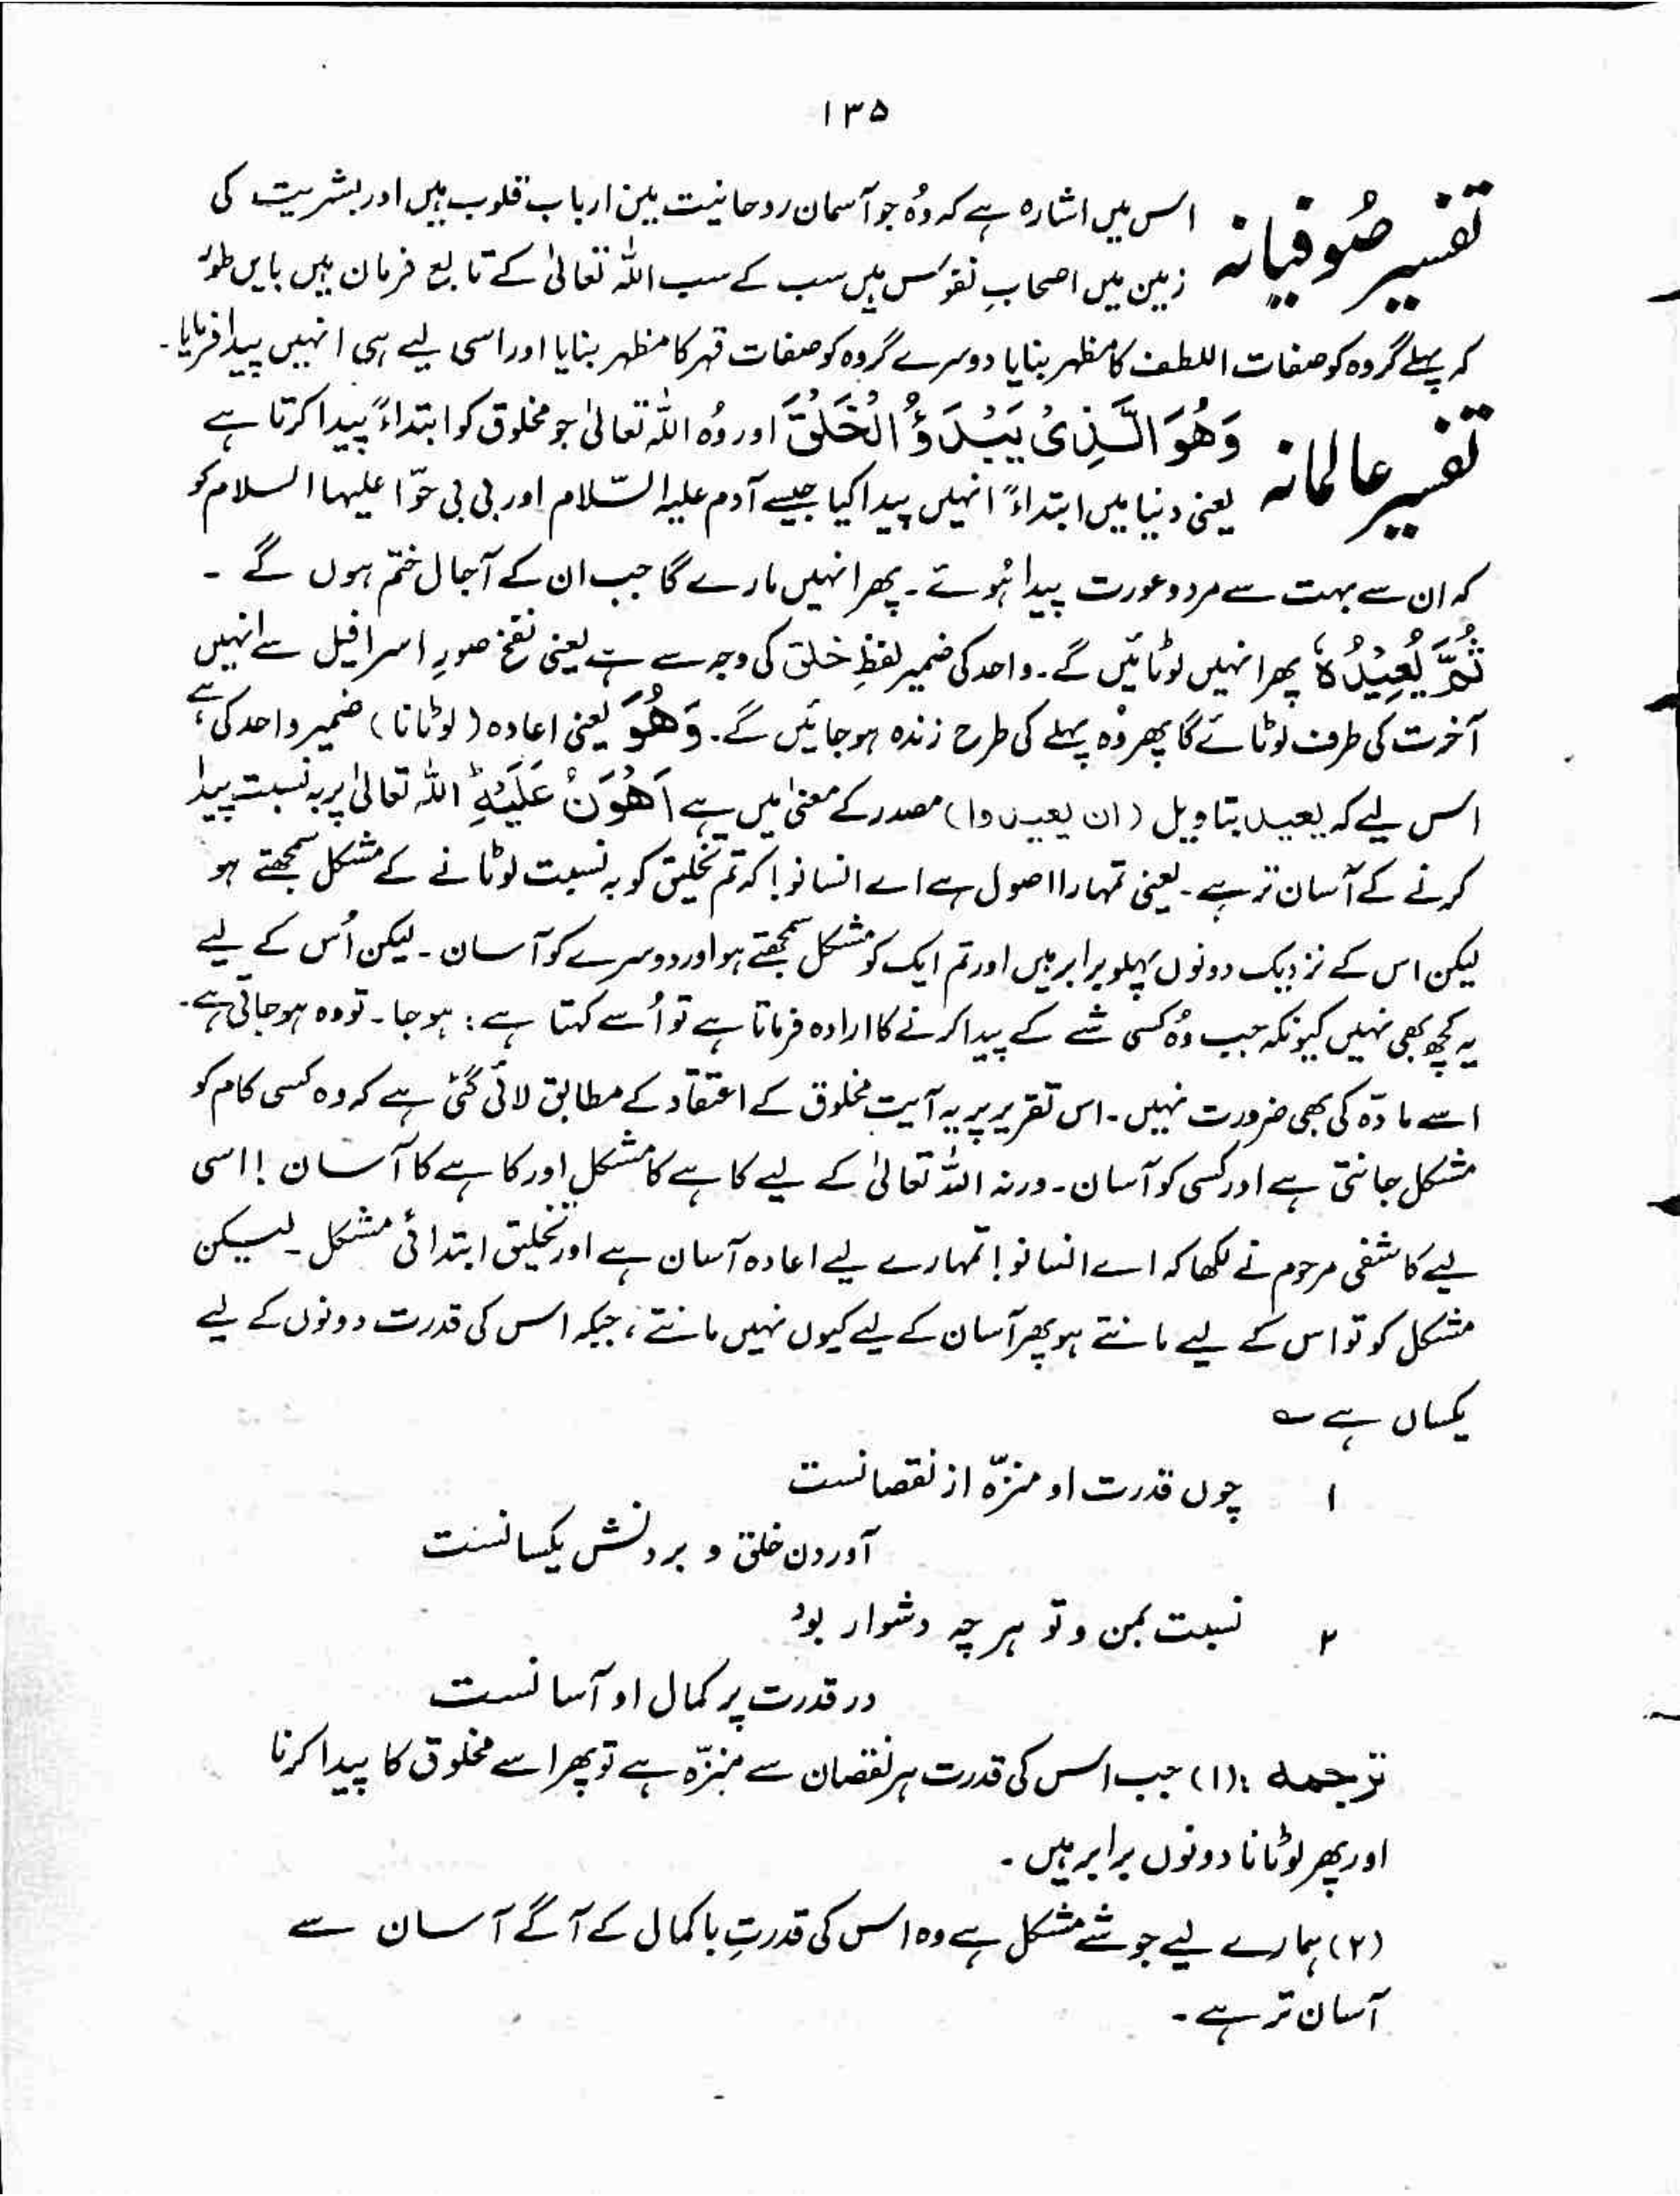 ۱۳۵
تفسیر صُوفیانہ
اس میں اشارہ ہے کہ وُہ جو آسمان روحانیت میں ارباب قلوب ہیں اور بشریت کی
زمین میں اصحابِ نفوس ہیں سب کے سب اللہ تعالیٰ کے تابع فرمان ہیں بایں طور
کہ پہلے گروہ کو صفات اللطف کا مظہر بنایا دوسرے گروہ کو صفات قہر کا مظہر بنایا اور اسی لیے ہی انہیں پیدا فرمایا۔
تفسیر عالمانہ
وَهُوَ الَّذِیْ یَبْدَؤُا الْخَلْقَ اور وُہ اللہ تعالیٰ جو مخلوق کو ابتداءً پیدا کرتا ہے
یعنی دنیا میں ابتداءً انہیں پیدا کیا جیسے آدم علیہ السّلام اور بی بی حوّا علیہا السلام کو
کہ ان سے بہت سے مرد و عورت پیدا ہُوئے۔ پھر انہیں مارے گا جب ان کے آجال ختم ہوں گے ۔
ثُمَّ یُعِیْدُہٗ پھر انہیں لوٹائیں گے۔ واحد کی ضمیر لفظِ خلق کی وجہ سے ہے یعنی نفخ صورِ اسرافیل سے انہیں
آخرت کی طرف لوٹائے گا پھر وُہ پہلے کی طرح زندہ ہوجائیں گے۔ وَهُوَ یعنی اعادہ (لوٹانا) ضمیر واحد کی ہے
اس لیے کہ یعید بتاویل (ان یعیدوا) مصدر کے معنیٰ میں ہے اَهْوَنُ عَلَیْهِ اللہ تعالیٰ پر بہ نسبت پیدا
کرنے کے آسان تر ہے۔ یعنی تمہارا اصول ہے اے انسانو! کہ تم تخلیق کو بہ نسبت لوٹانے کے مشکل سمجھتے ہو
لیکن اس کے نزدیک دونوں پہلو برابر ہیں اور تم ایک کو مشکل سمجھتے ہو اور دوسرے کو آسان۔ لیکن اُس کے لیے
یہ کچھ بھی نہیں کیونکہ جب وُہ کسی شے کے پیدا کرنے کا ارادہ فرماتا ہے تو اُسے کہتا ہے: ہوجا۔ تو وہ ہوجاتی ہے۔
اسے مادّہ کی بھی ضرورت نہیں۔ اس تقریر پر یہ آیت مخلوق کے اعتقاد کے مطابق لائی گئی ہے کہ وہ کسی کام کو
مشکل جانتی ہے اور کسی کو آسان۔ ورنہ اللہ تعالیٰ کے لیے کاہے کا مشکل اور کاہے کا آسان ! اسی
لیے کاشفی مرحوم نے لکھا کہ اے انسانو! تمہارے لیے اعادہ آسان ہے اور تخلیق ابتدائی مشکل۔ لیکن
مشکل کو تو اس کے لیے مانتے ہو پھر آسان کے لیے کیوں نہیں مانتے، جبکہ اس کی قدرت دونوں کے لیے
یکساں ہے ؎
۱ چوں قدرت او منزّہ از نقصانست
آوردن خلق و بردنش یکسانست
۲ نسبت بمن و تو ہر چہ دشوار بود
در قدرت پر کمال او آسانست
ترجمہ :(۱) جب اس کی قدرت ہر نقصان سے منزّہ ہے تو پھر اسے مخلوق کا پیدا کرنا
اور پھر لوٹانا دونوں برابر ہیں ۔
(۲) ہمارے لیے جو شے مشکل ہے وہ اس کی قدرتِ باکمال کے آگے آسان سے
آسان تر ہے ۔